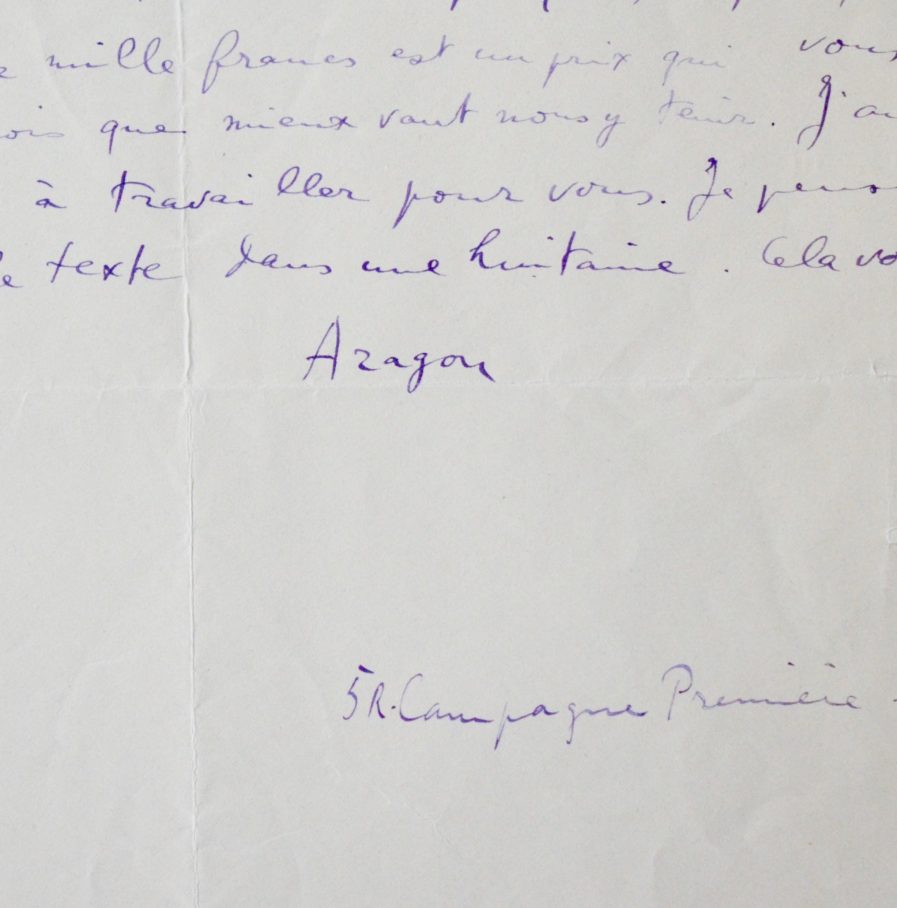 mille francs est un prix qui vous
que mieux vaut nous y tenir. J'au
à travailler pour vous. Je pens
texte dans une huitaine. Cela vo
Aragon
5 R. Campagne Première